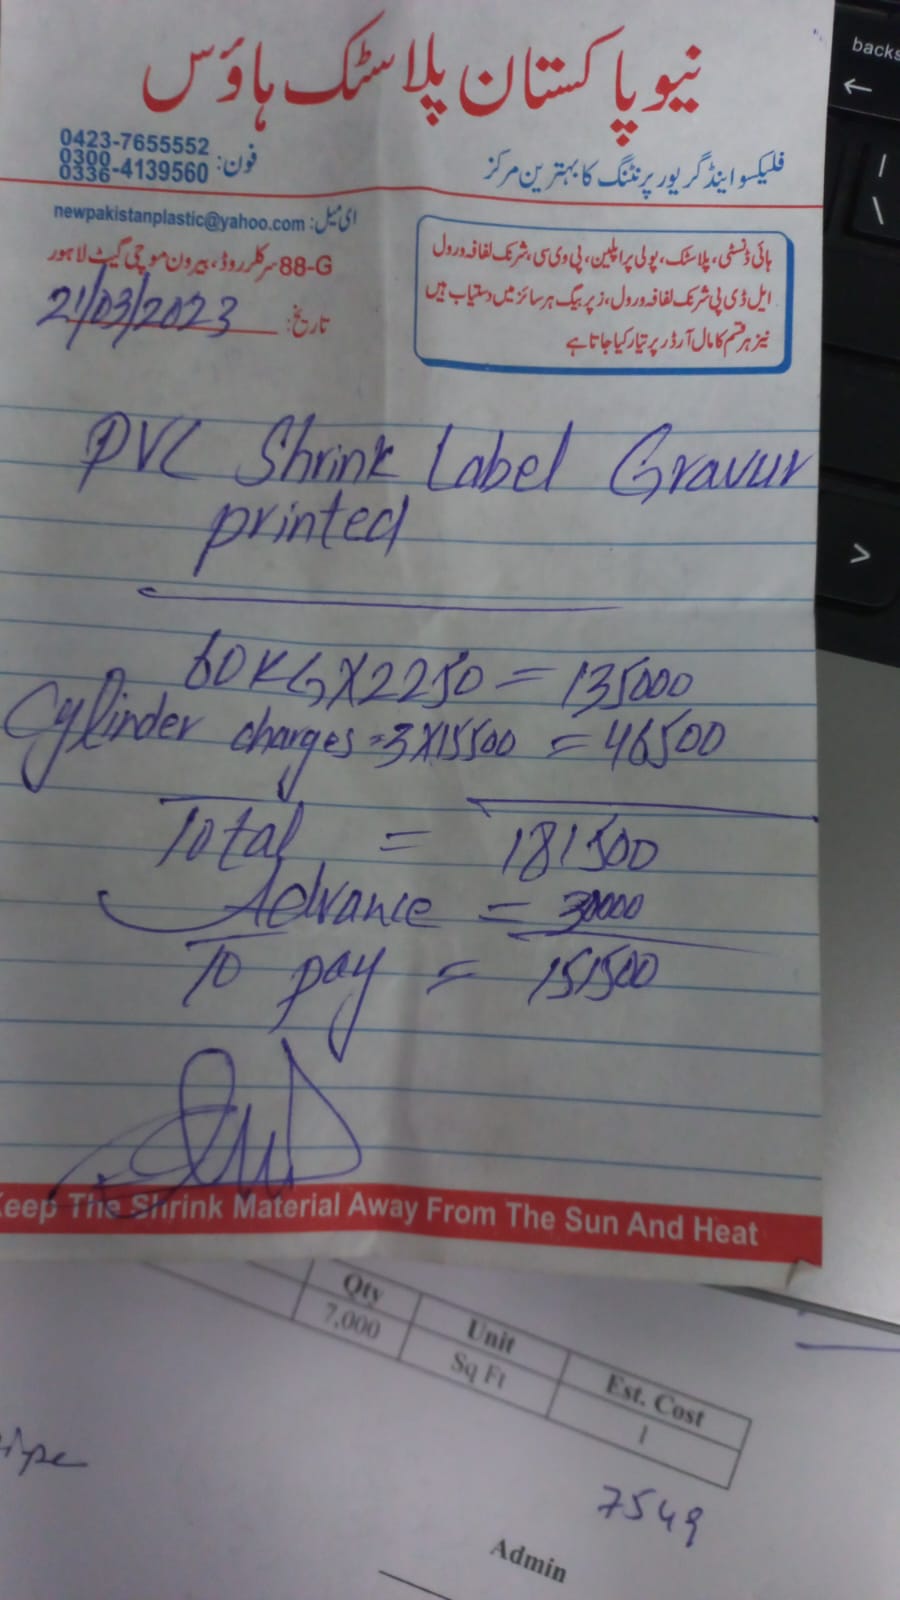 نیو پاکستان پلاسٹک ہاؤس
فلیکسو اینڈ گریور پرنٹنگ کا بہترین مرکز
فون: 0423-7655552
0300
0336-4139560
ای میل: newpakistanplastic@yahoo.com
88-G سرکلر روڈ، بیرون موچی گیٹ لاہور
تاریخ: 21/03/2023
ہائی ڈنسٹی، پلاسٹک، پولی پراپلین، پی وی سی، شرنک لفافہ و رول
ایل ڈی پی شرنک لفافہ و رول، زپر بیگ ہر سائز میں دستیاب ہیں
نیز ہر قسم کا مال آرڈر پر تیار کیا جاتا ہے
PVC Shrink Label Gravur
printed
60KGX2250 = 135000
Cylinder charges = 3X15500 = 46500
Total = 181500
Advance = 30000
To pay = 151500
Keep The Shrink Material Away From The Sun And Heat
Qty Unit Est. Cost
7,000 Sq Ft 1
7549
Admin
backs
←
|
\
>